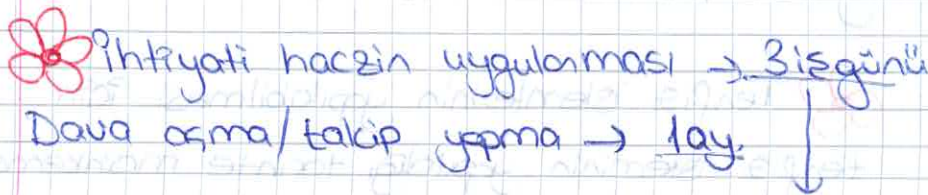 İhtiyati haczin uygulanması → 3 işgünü
Dava açma/takip yapma → 1 ay.